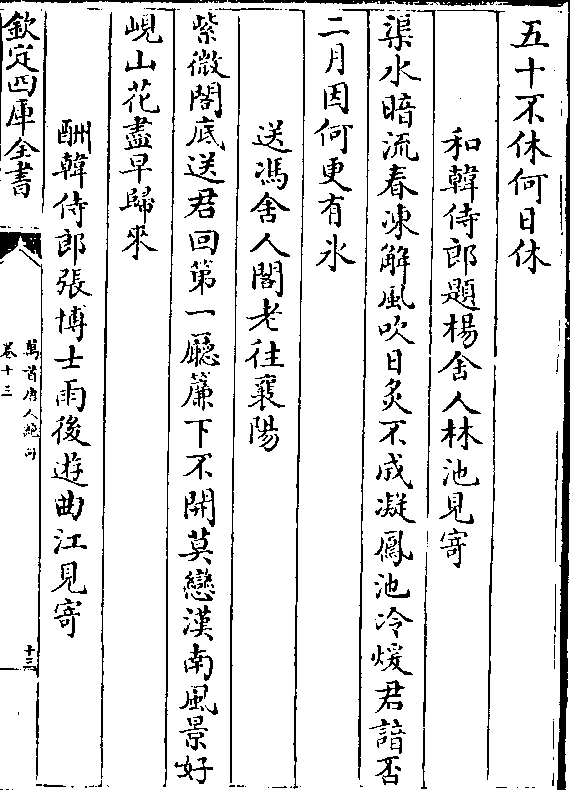 五十不休何日休
和韓侍郎題楊舍人林池見寄
渠水暗流春凍解風吹日炙不成凝鳳池冷煖君諳否
二月因何更有氷
送馮舍人閣老往襄陽
紫微閣底送君回第一廳簾下不開莫戀漢南風景好
峴山花盡早歸來
酬韓侍郎張博士雨後遊曲江見寄
欽定四庫全書
萬首唐人絶句
卷十三
十三